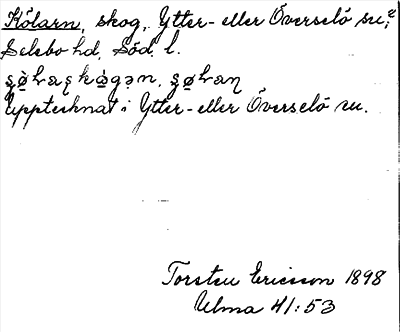 Kölarn, skog, Ytter- eller Överselö sn,?
Selebo hd, Söd. l.
Upptecknat i Ytter- eller Överselö sn.
Torsten Ericsson 1898
Ulma 41:53